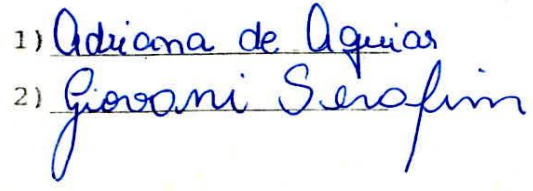 1) Adriana de Aguiar
2) Giovani Serafim